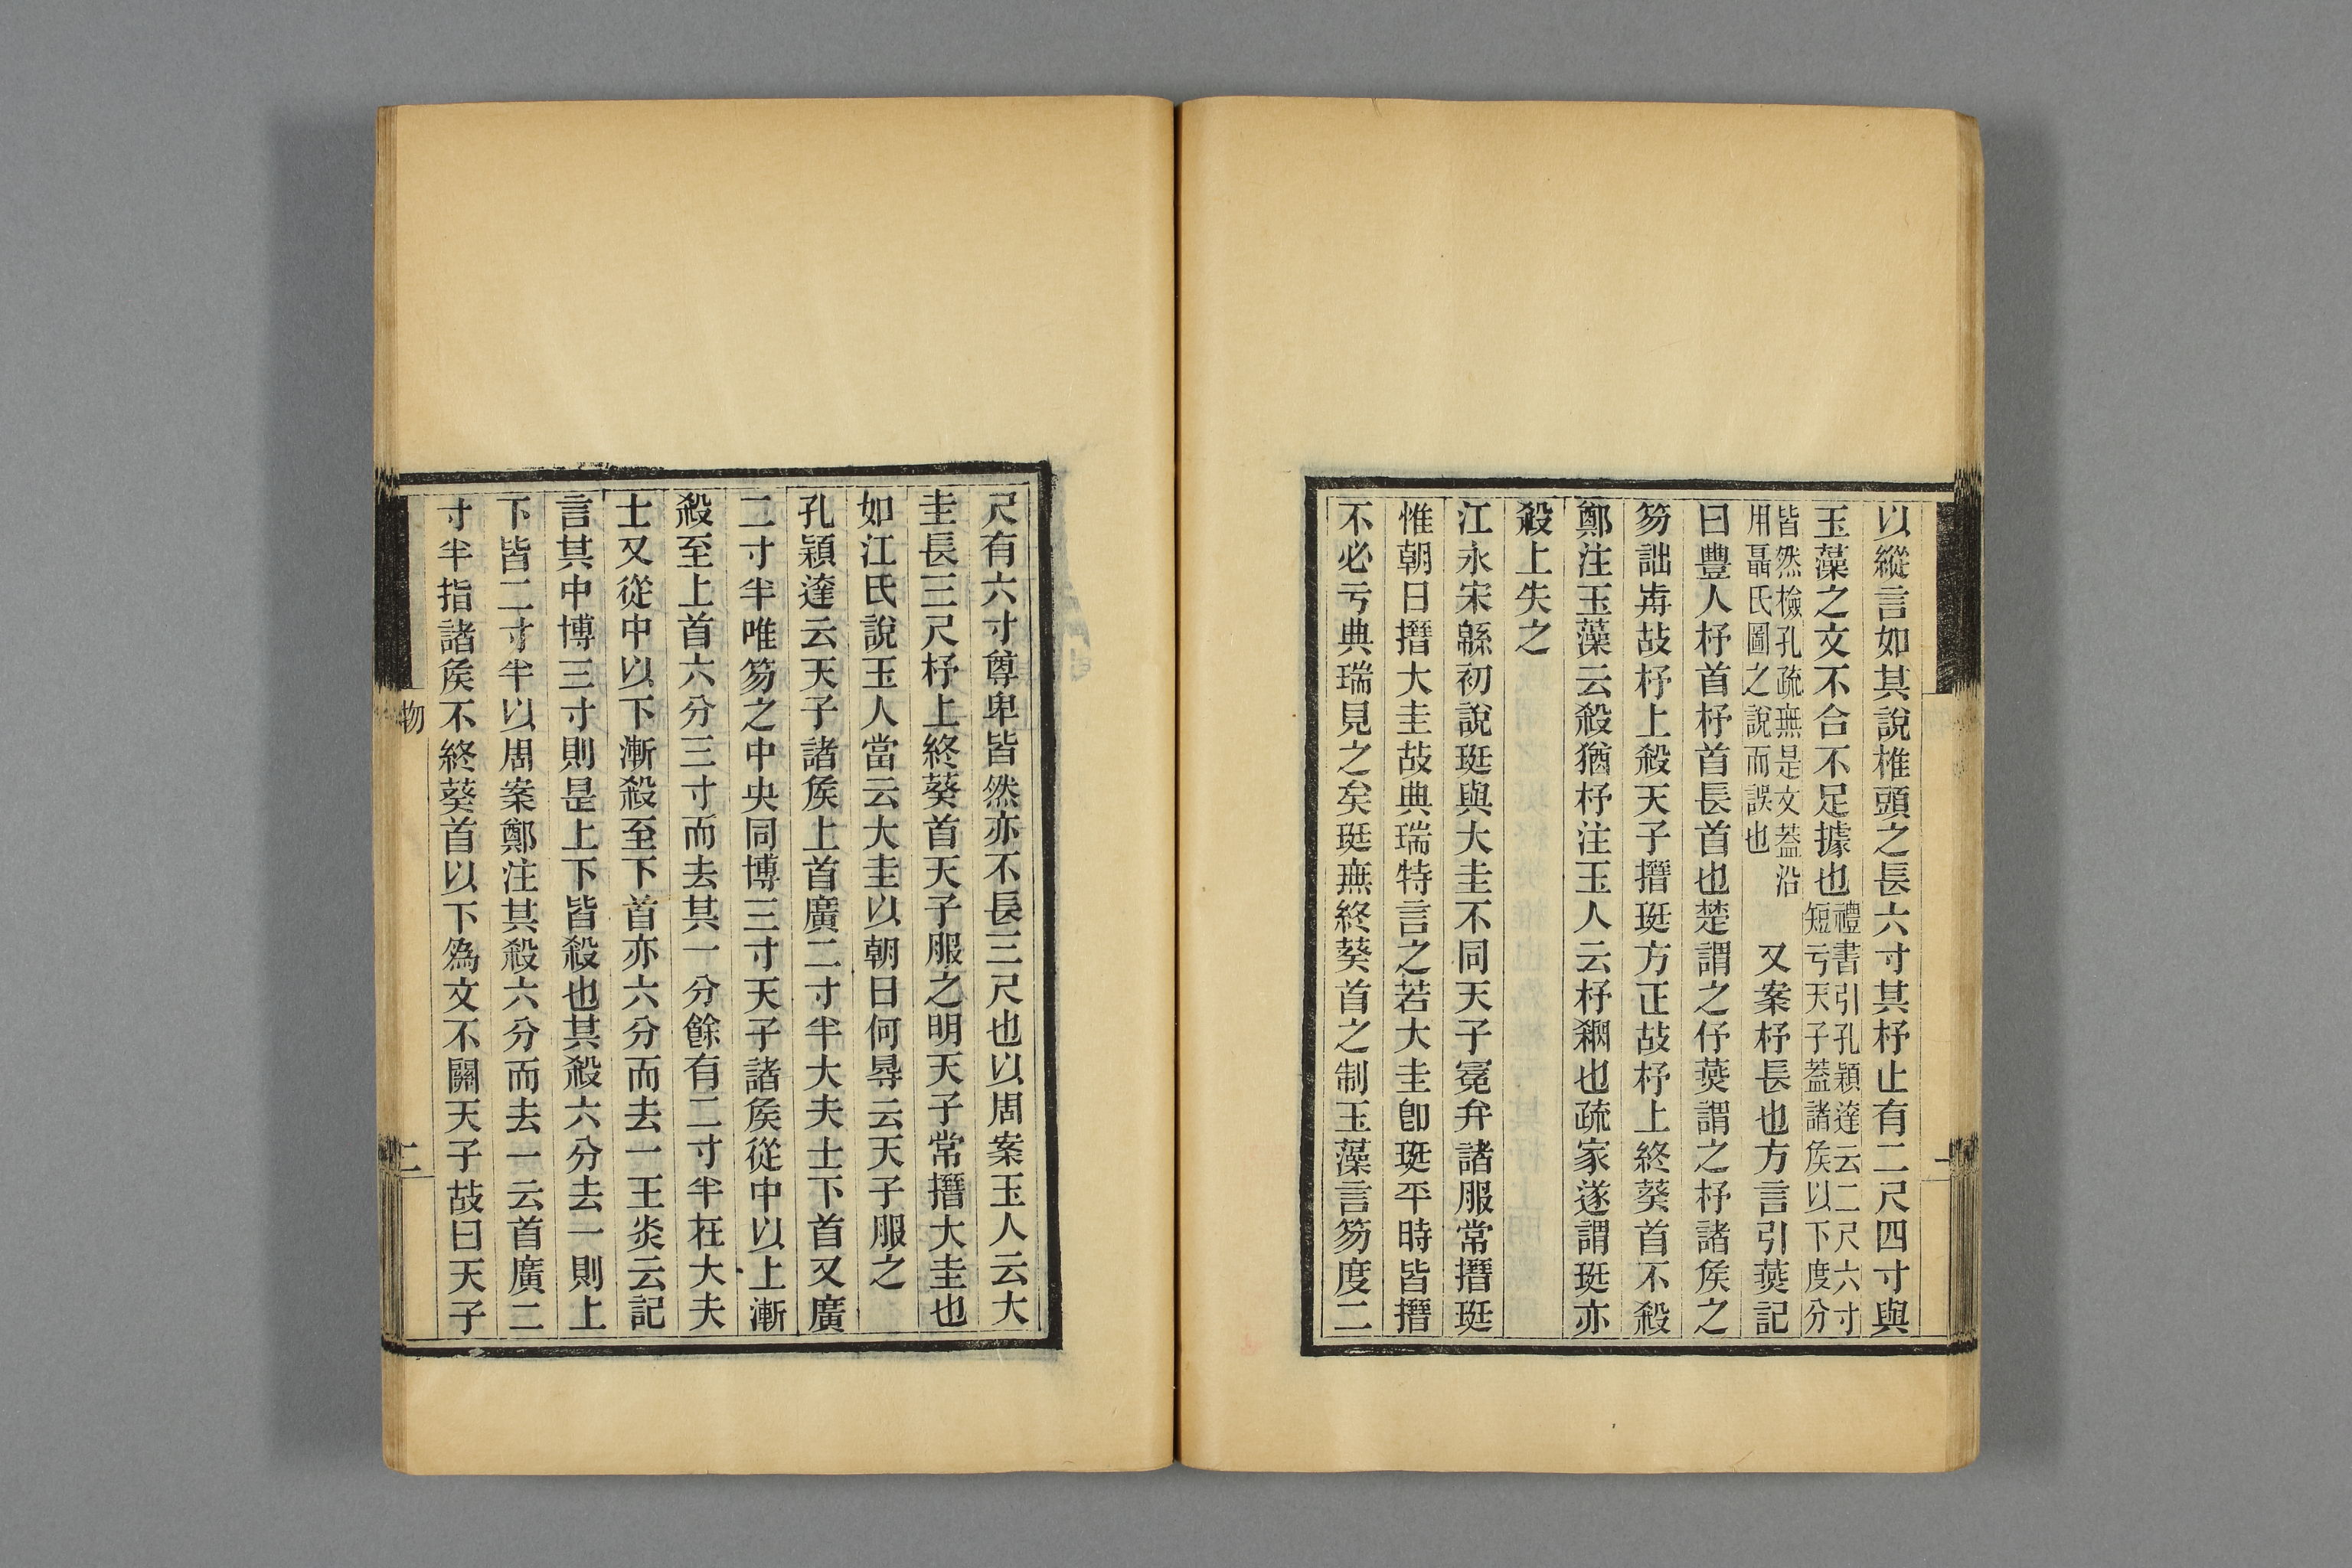 以縱言如其說椎頭之長六寸其杼止有二尺四寸與
玉藻之文不合不足據也禮書引孔穎達云二尺六寸
短亏天子葢諸矦以下度分
皆然檢孔疏無是文葢沿
用聶氏圖之說而誤也
又案杼長也方言引燕記
曰豐人杼首杼首長首也楚謂之伃燕謂之杼諸矦之
笏詘歬故杼上殺天子搢珽方正故杼上終葵首不殺
鄭注玉藻云殺猶杼注玉人云杼䋞也疏家遂謂珽亦
殺上失之
江永宋緜初說珽與大圭不同天子冕弁諸服常搢珽
惟朝日搢大圭故典瑞特言之若大圭卽珽平時皆搢
不必亏典瑞見之矣珽無終葵首之制玉藻言笏度二
尺有六寸尊卑皆然亦不長三尺也以周案玉人云大
圭長三尺杼上終葵首天子服之明天子常搢大圭也
如江氏說玉人當云大圭以朝日何㝵云天子服之
孔穎達云天子諸矦上首廣二寸半大夫士下首又廣
二寸半唯笏之中央同博三寸天子諸矦從中以上漸
殺至上首六分三寸而去其一分餘有二寸半在大夫
士又從中以下漸殺至下首亦六分而去一王炎云記
言其中博三寸則是上下皆殺也其殺六分去一則上
下皆二寸半以周案鄭注其殺六分而去一云首廣二
寸半指諸矦不終葵首以下爲文不關天子故曰天子
物
二